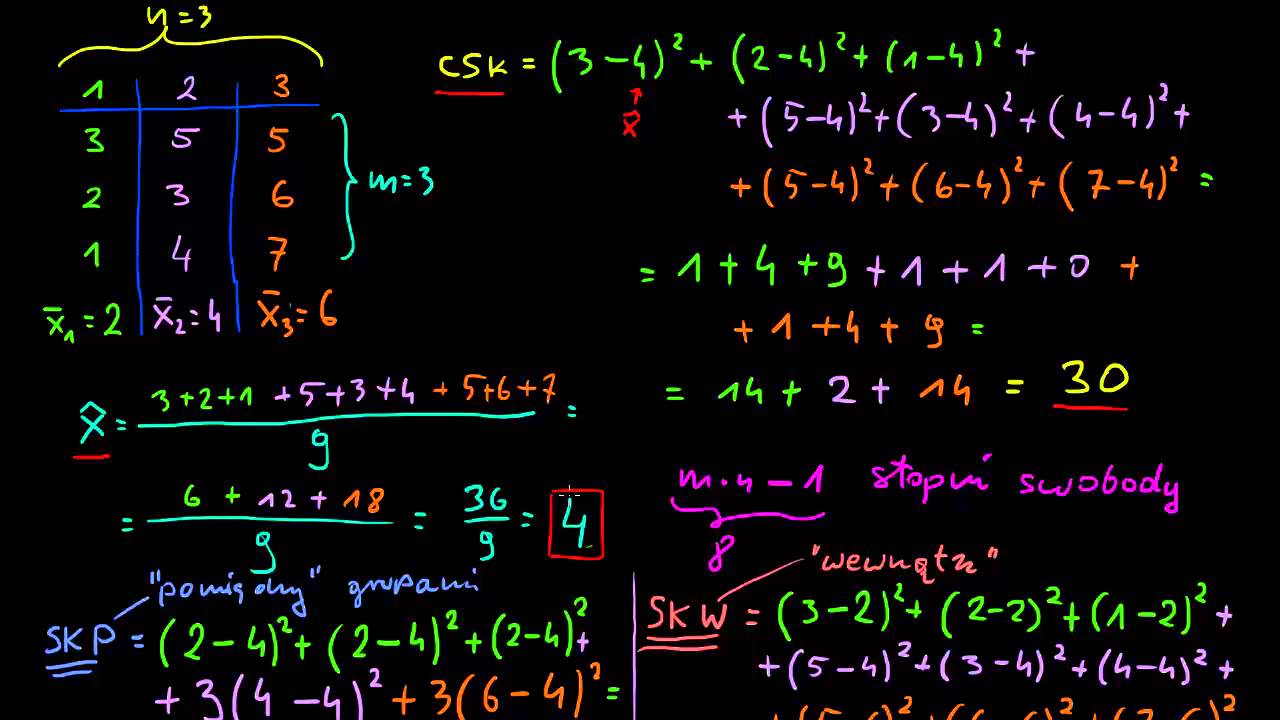 n=3
1 2 3
3 5 5
2 3 6
1 4 7
m=3
x̄₁=2 x̄₂=4 x̄₃=6
x̿ = (3+2+1 +5+3+4 +5+6+7)/9 =
= (6 + 12 + 18)/9 = 36/9 = 4
CSK = (3-4)² + (2-4)² + (1-4)² +
x̿
+ (5-4)² + (3-4)² + (4-4)² +
+ (5-4)² + (6-4)² + (7-4)² =
= 1 + 4 + 9 + 1 + 1 + 0 +
+ 1 + 4 + 9 =
= 14 + 2 + 14 = 30
m·n - 1 stopni swobody
8
"pomiędzy" grupami
SKP = (2-4)² + (2-4)² + (2-4)² +
+ 3(4-4)² + 3(6-4)² =
"wewnątrz"
SKW = (3-2)² + (2-2)² + (1-2)² +
+ (5-4)² + (3-4)² + (4-4)² +